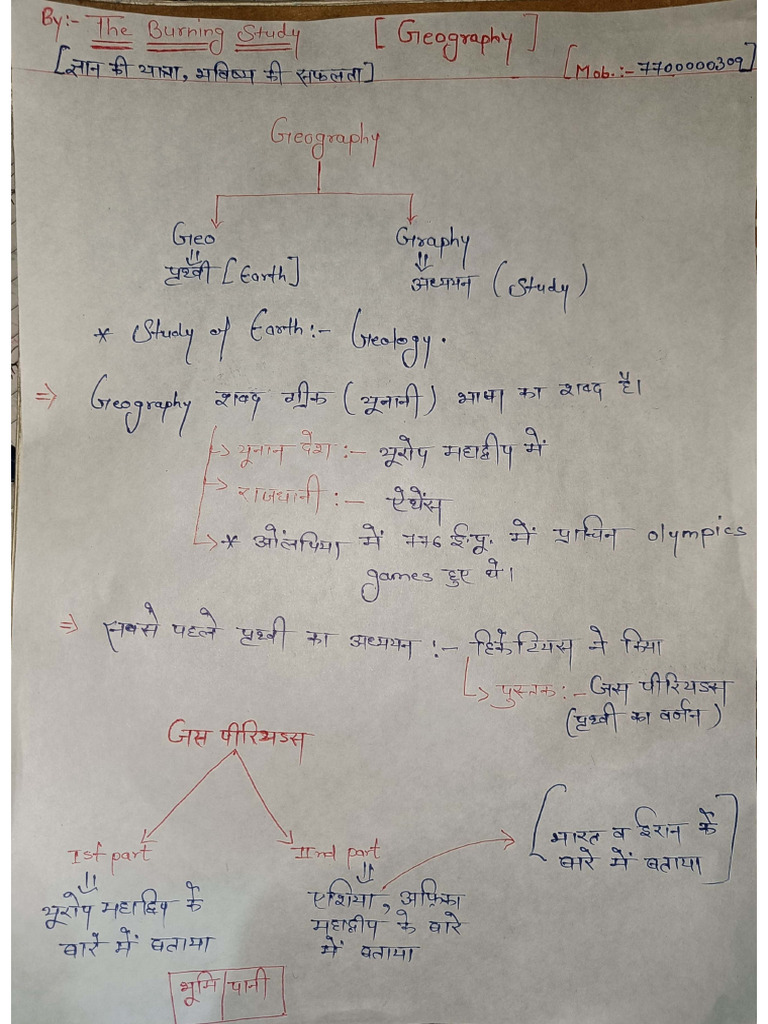 By:- The Burning Study [Geography]
[ज्ञान की यात्रा, भविष्य की सफलता] [Mob.:- 7700000309]
Geography
Geo Graphy
पृथ्वी [Earth] अध्ययन (Study)
* Study of Earth:- Geology.
⇒ Geography शब्द ग्रीक (यूनानी) भाषा का शब्द है।
→ यूनान देश:- यूरोप महाद्वीप में
→ राजधानी:- ऐथेंस
→ * ओलंपिया में 776 ई.पू. में प्राचिन olympics
games हुए थे।
⇒ सबसे पहले पृथ्वी का अध्ययन:- हिकेटियस ने किया
→ पुस्तक:- जस पीरियडस
(पृथ्वी का वर्जन)
जस पीरियडस
Ist part IInd part
[भारत व ईरान के
बारे में बताया]
यूरोप महाद्विप के
बारे में बताया
एशिया, अफ्रिका
महाद्वीप के बारे
में बताया
भूमि|पानी